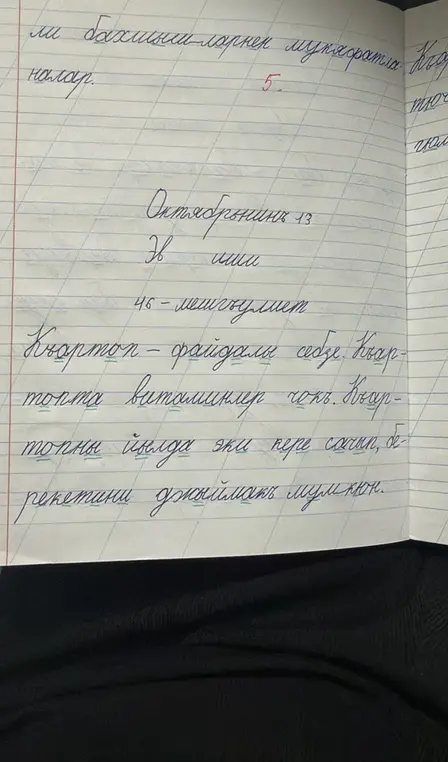 ли бахшиш-ларнен мукяфатла-
налар.
5.
Октябрьнинъ 13
Эв иши
46-мешгъулиет
Къартоп – файдалы себзе. Къар-
топта витаминлер чокъ. Къар-
топны йылда эки кере сачып, бе-
рекетини джыймакъ мумкюн.